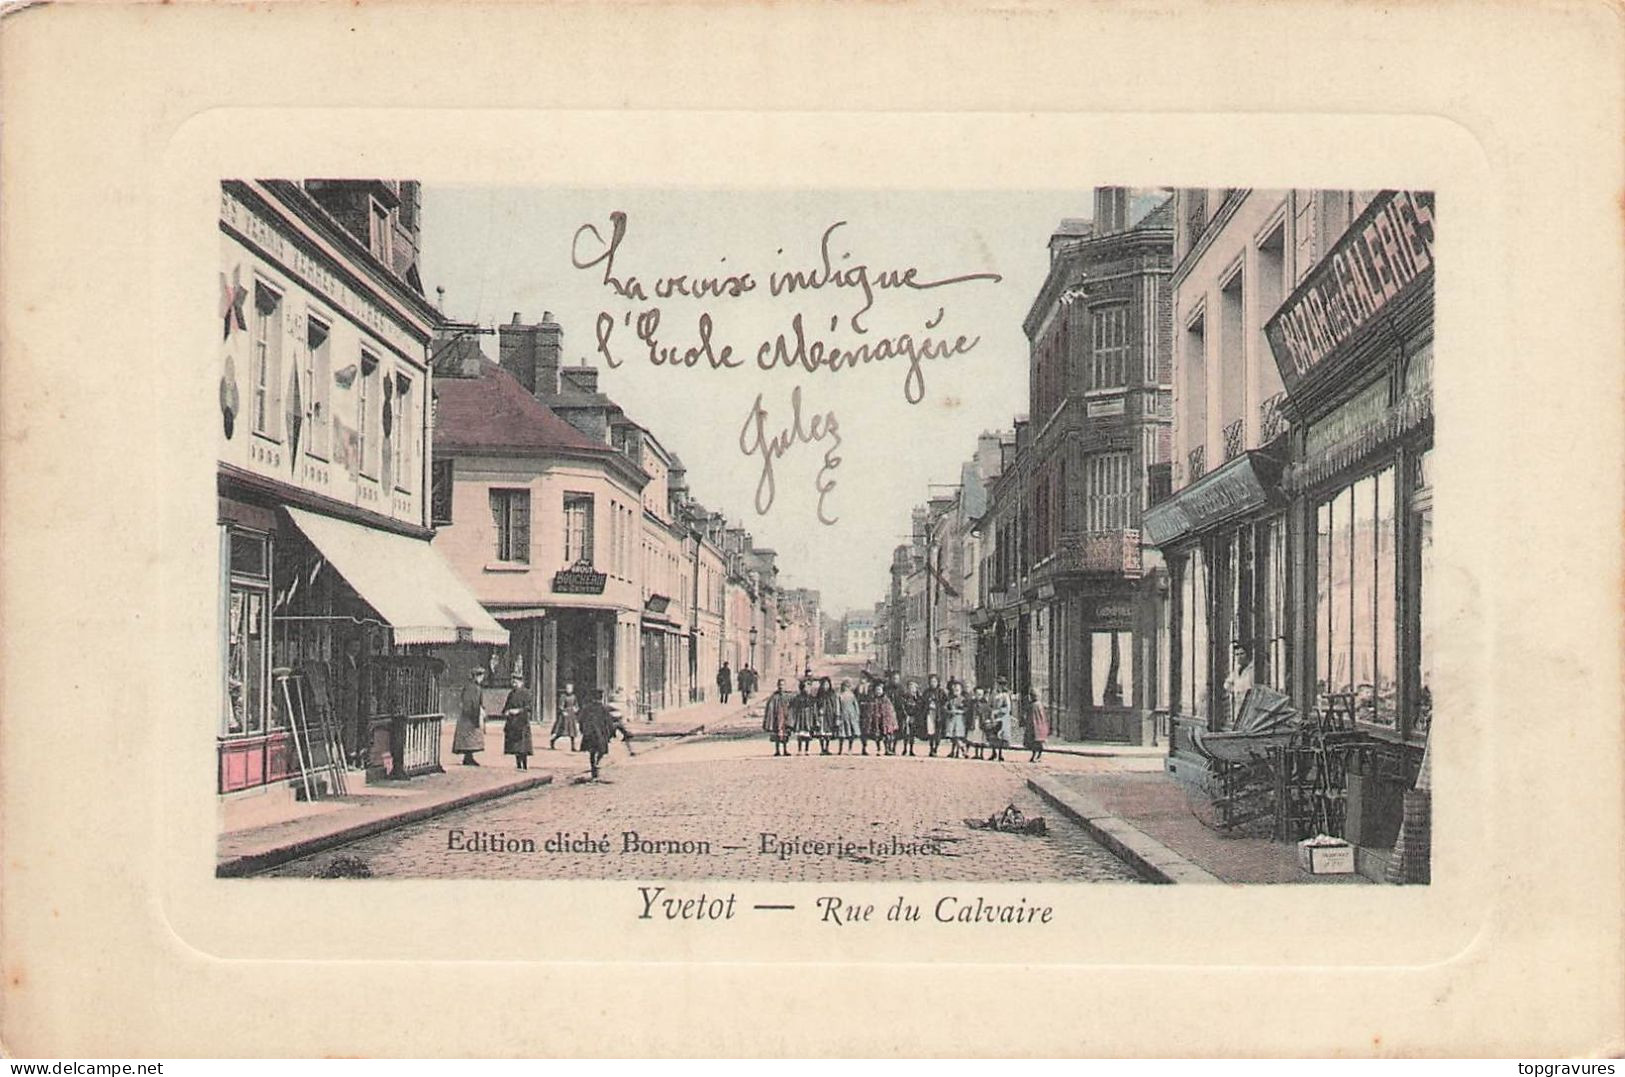 La croix indique
l'Ecole Ménagère
Jules
E
BAZAR des GALERIES
BOUCHERIE
DU CENTRE
Edition cliché Bornon — Epicerie-tabacs
Yvetot — Rue du Calvaire
delcampe.net
topgravures